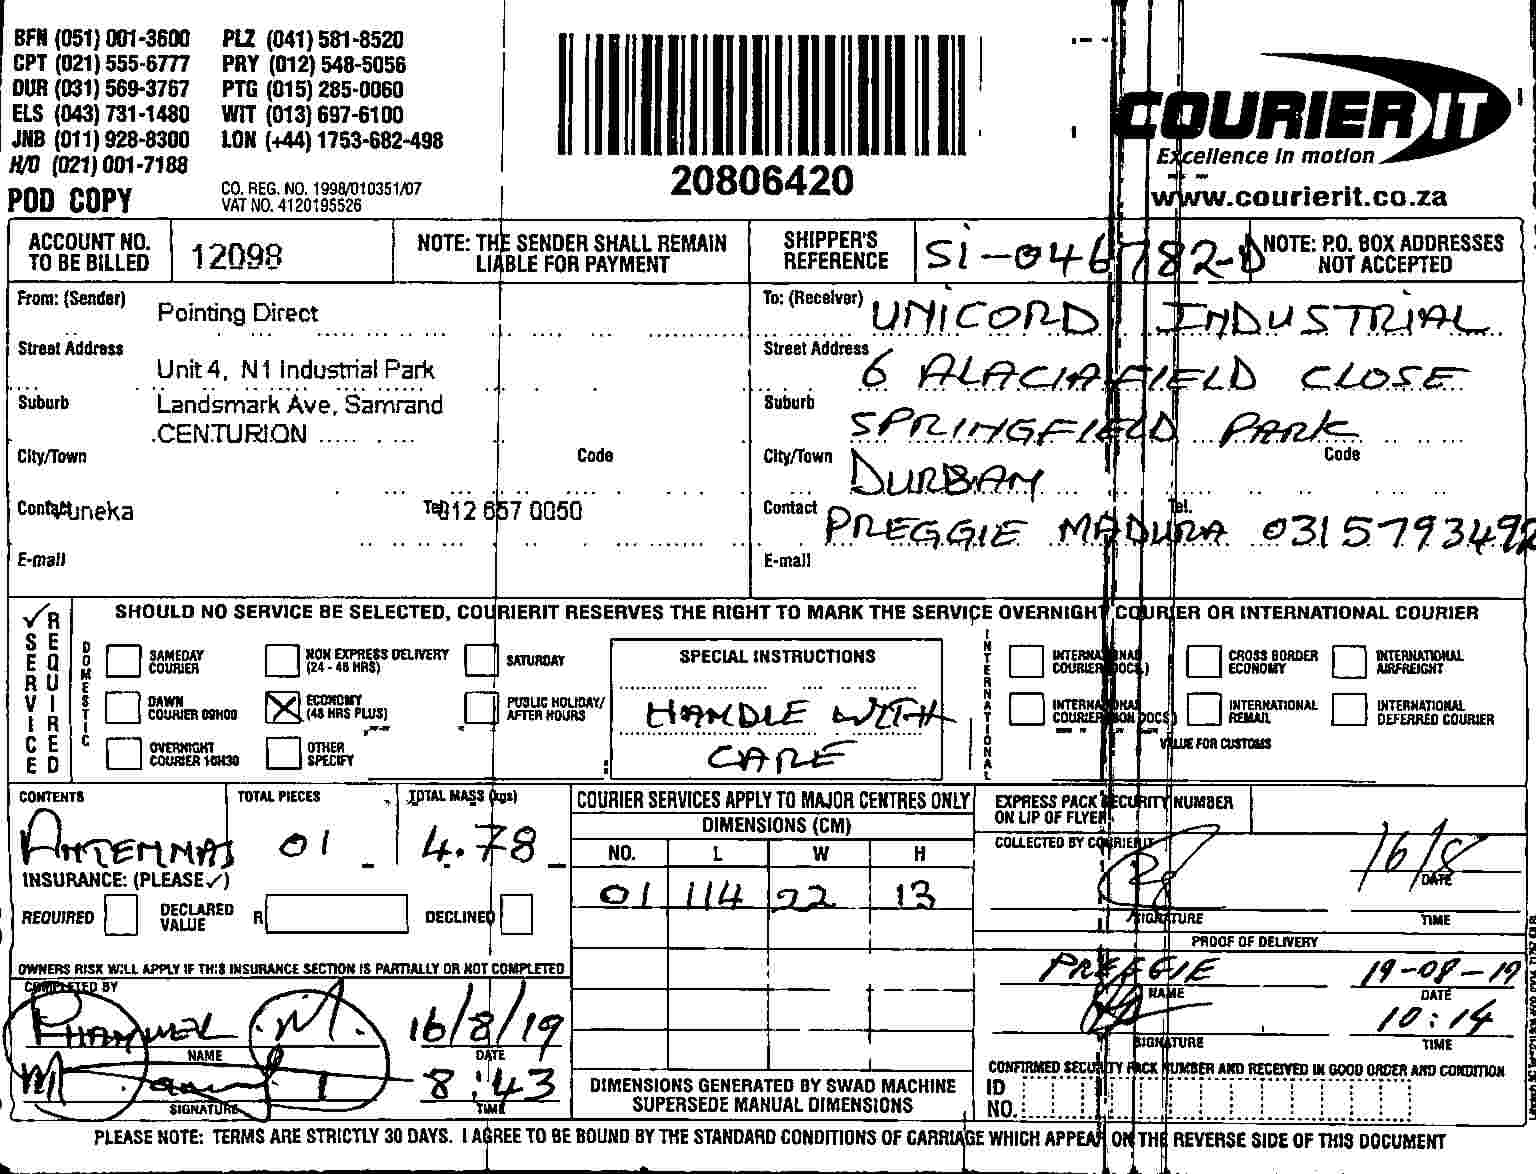 BFN (051) 001-3600 PLZ (041) 581-8520
CPT (021) 555-6777 PRY (012) 548-5056
DUR (031) 569-3767 PTG (015) 285-0060
ELS (043) 731-1480 WIT (013) 697-6100
JNB (011) 928-8300 LON (+44) 1753-682-498
H/O (021) 001-7188
POD COPY
CO. REG. NO. 1998/010351/07
VAT NO. 4120195526
20806420
COURIER IT
Excellence in motion
www.courierit.co.za
ACCOUNT NO. TO BE BILLED 12098
NOTE: THE SENDER SHALL REMAIN LIABLE FOR PAYMENT
SHIPPER'S REFERENCE SI-046782-D
NOTE: P.O. BOX ADDRESSES NOT ACCEPTED
From: (Sender) Pointing Direct
Street Address Unit 4, N1 Industrial Park
Suburb Landsmark Ave, Samrand
CENTURION
City/Town Code
Contact Yuneka Tel 012 657 0050
E-mail
To: (Receiver) UNICORD INDUSTRIAL
Street Address 6 ALACIAFIELD CLOSE
Suburb SPRINGFIELD PARK
City/Town DURBAN Code
Contact PREGGIE MADURA Tel. 0315793492
E-mail
✓ SERVICE REQUIRED
SHOULD NO SERVICE BE SELECTED, COURIERIT RESERVES THE RIGHT TO MARK THE SERVICE OVERNIGHT COURIER OR INTERNATIONAL COURIER
DOMESTIC
SAMEDAY COURIER
NON EXPRESS DELIVERY (24 - 48 HRS)
SATURDAY
DAWN COURIER 09H00
X ECONOMY (48 HRS PLUS)
PUBLIC HOLIDAY/ AFTER HOURS
OVERNIGHT COURIER 10H30
OTHER SPECIFY
SPECIAL INSTRUCTIONS
HANDLE WITH
CARE
INTERNATIONAL
INTERNATIONAL COURIER (DOCS.)
CROSS BORDER ECONOMY
INTERNATIONAL AIRFREIGHT
INTERNATIONAL COURIER (NON DOCS)
INTERNATIONAL REMAIL
INTERNATIONAL DEFERRED COURIER
VALUE FOR CUSTOMS
CONTENTS TOTAL PIECES TOTAL MASS (kgs)
ANTENNAS 01 4.78
INSURANCE: (PLEASE ✓)
REQUIRED DECLARED VALUE R DECLINED
OWNERS RISK WILL APPLY IF THIS INSURANCE SECTION IS PARTIALLY OR NOT COMPLETED
COMPLETED BY
16/8/19
NAME DATE
8:43
SIGNATURE TIME
COURIER SERVICES APPLY TO MAJOR CENTRES ONLY
DIMENSIONS (CM)
NO. L W H
01 114 22 13
DIMENSIONS GENERATED BY SWAD MACHINE
SUPERSEDE MANUAL DIMENSIONS
EXPRESS PACK SECURITY NUMBER
ON LIP OF FLYER
COLLECTED BY COURIERIT
16/8
DATE
SIGNATURE TIME
PROOF OF DELIVERY
PREGGIE 19-08-19
NAME DATE
10:14
SIGNATURE TIME
CONFIRMED SECURITY PACK NUMBER AND RECEIVED IN GOOD ORDER AND CONDITION
ID NO.
PLEASE NOTE: TERMS ARE STRICTLY 30 DAYS. I AGREE TO BE BOUND BY THE STANDARD CONDITIONS OF CARRIAGE WHICH APPEAR ON THE REVERSE SIDE OF THIS DOCUMENT